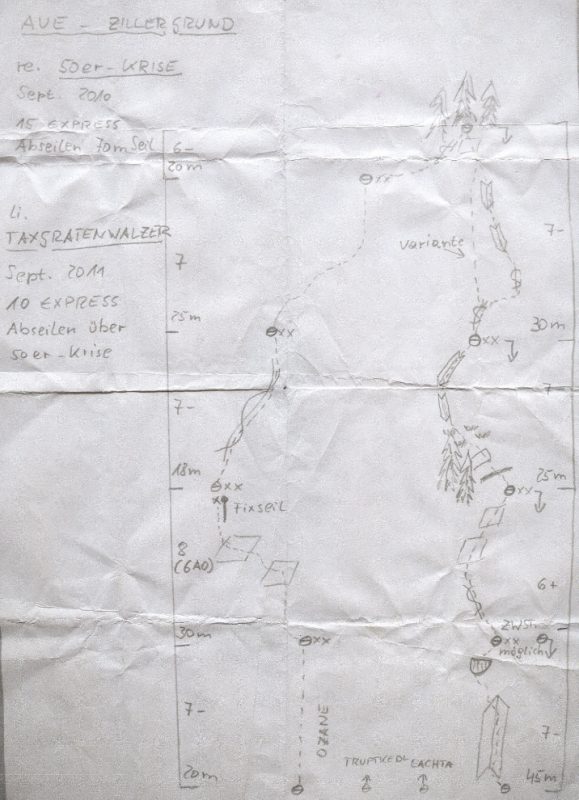 AUE - ZILLERGRUND
re. 50er-KRISE
Sept. 2010
15 EXPRESS
Abseilen 70m Seil
li.
TAXGRATENWALZER
Sept. 2011
10 EXPRESS
Abseilen über
50er-Krise
6-
20m
7
25m
7-
18m
8
(6A0)
30m
7-
20m
xx
xx
xx
x
Fixseil
xx
OZANE
Variante
xx
xx
ZWST.
xx
möglich
7-
30m
7-
25m
6+
7-
45m